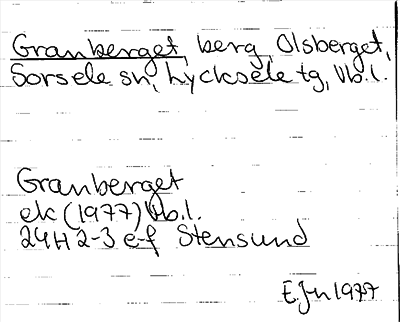 Granberget, berg, Olsberget,
Sorsele sn, Lycksele tg, Vb.l.
Granberget
ek (1977) Vb.l.
24H 2-3 e-f Stensund
E.J-n 1977